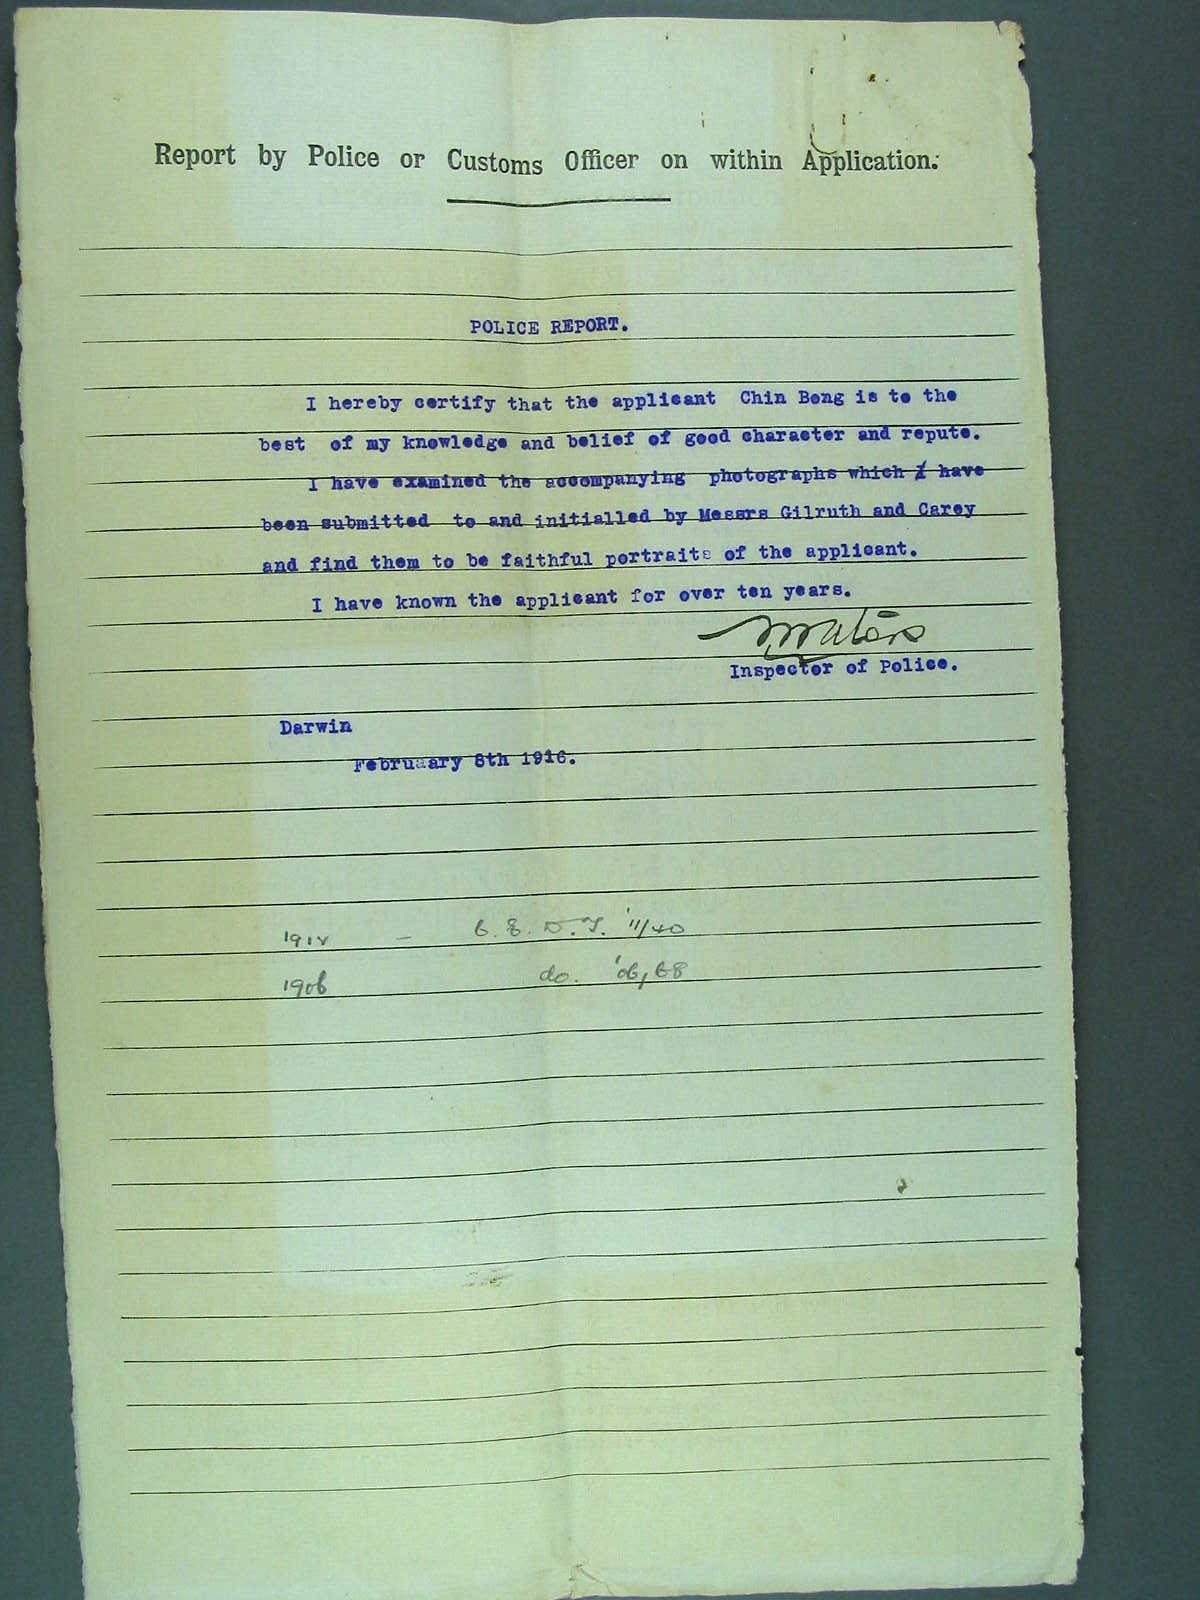 Report by Police or Customs Officer on within Application.
POLICE REPORT.
I hereby certify that the applicant Chin Bong is to the
best of my knowledge and belief of good character and repute.
I have examined the accompanying photographs which I have
been submitted to and initialled by Messrs Gilruth and Carey
and find them to be faithful portraits of the applicant.
I have known the applicant for over ten years.
N Waters
Inspector of Police.
Darwin
Februaary 8th 1916.
1912 - C. E. D. T. '11/40
1906 do. '06/68